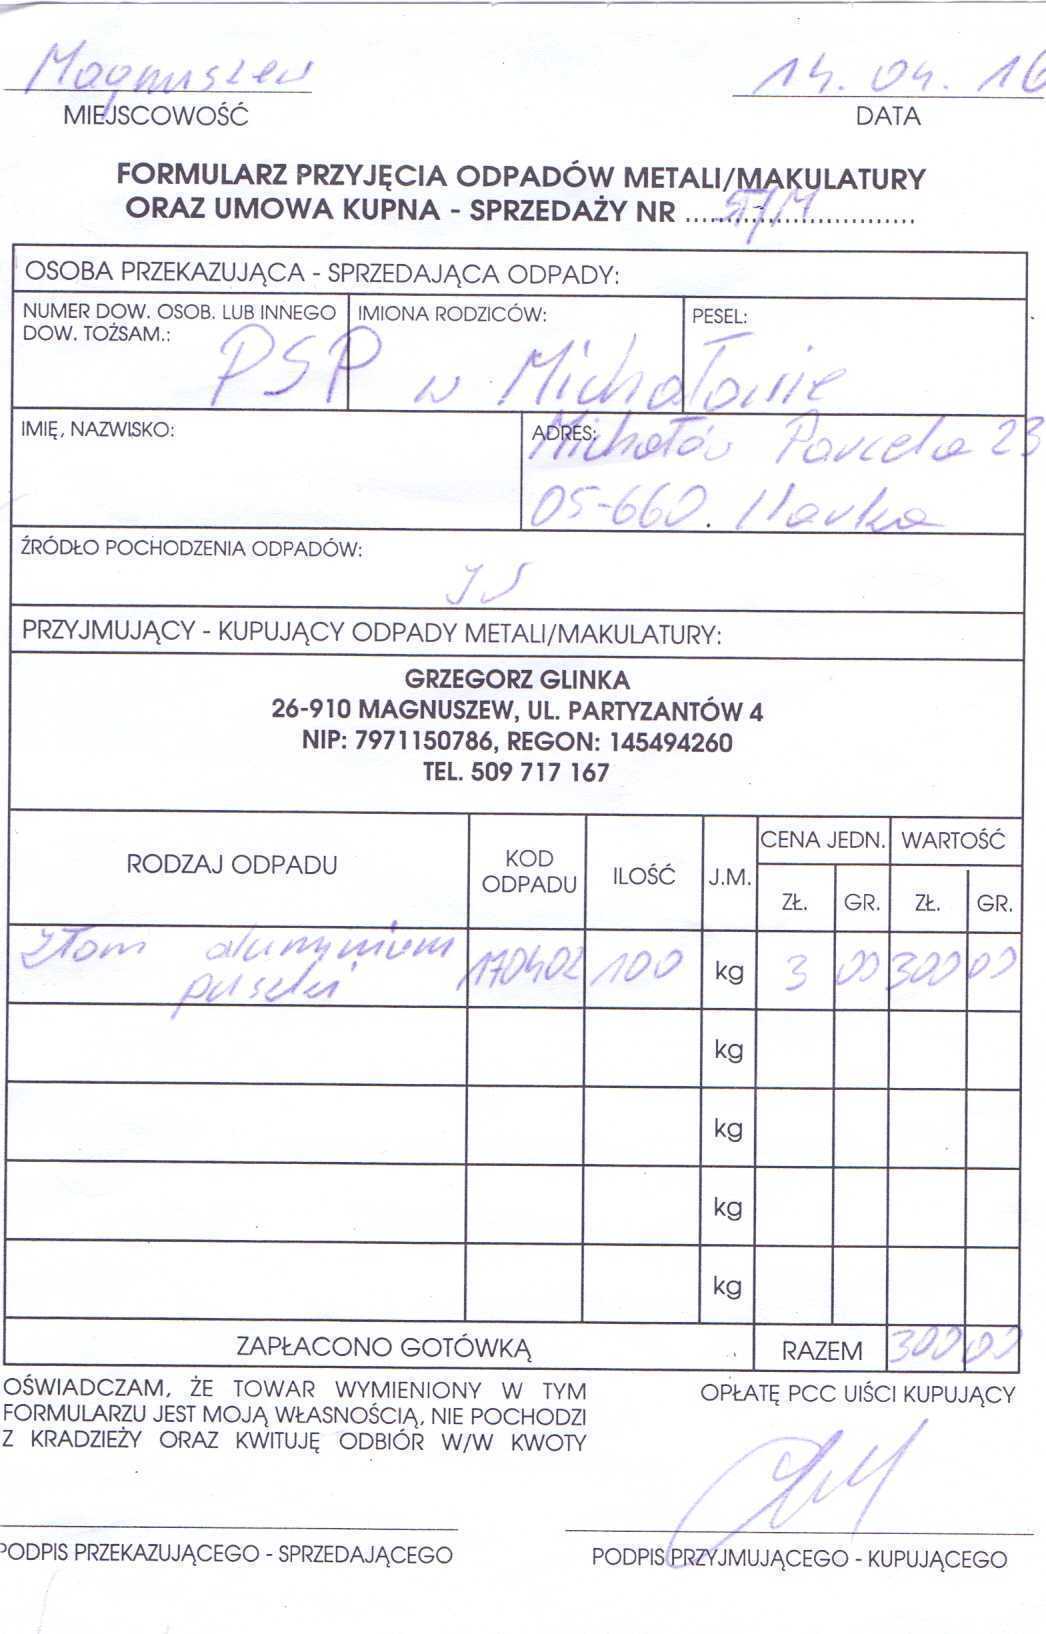 Magnuszew 14.04.16
MIEJSCOWOŚĆ DATA
FORMULARZ PRZYJĘCIA ODPADÓW METALI/MAKULATURY
ORAZ UMOWA KUPNA - SPRZEDAŻY NR
OSOBA PRZEKAZUJĄCA - SPRZEDAJĄCA ODPADY:
NUMER DOW. OSOB. LUB INNEGO DOW. TOŻSAM.: IMIONA RODZICÓW: PESEL:
PSP w Michałowie
IMIĘ, NAZWISKO: ADRES:
Michałów Parcela 23
05-660 Warka
ŹRÓDŁO POCHODZENIA ODPADÓW:
PRZYJMUJĄCY - KUPUJĄCY ODPADY METALI/MAKULATURY:
GRZEGORZ GLINKA
26-910 MAGNUSZEW, UL. PARTYZANTÓW 4
NIP: 7971150786, REGON: 145494260
TEL. 509 717 167
RODZAJ ODPADU KOD ODPADU ILOŚĆ J.M. CENA JEDN. WARTOŚĆ
ZŁ. GR. ZŁ. GR.
złom aluminium 170402 100 kg 3 00 300 00
puszki
kg
kg
kg
kg
ZAPŁACONO GOTÓWKĄ RAZEM 300 00
OŚWIADCZAM, ŻE TOWAR WYMIENIONY W TYM OPŁATĘ PCC UIŚCI KUPUJĄCY
FORMULARZU JEST MOJĄ WŁASNOŚCIĄ, NIE POCHODZI
Z KRADZIEŻY ORAZ KWITUJĘ ODBIÓR W/W KWOTY
PODPIS PRZEKAZUJĄCEGO - SPRZEDAJĄCEGO PODPIS PRZYJMUJĄCEGO - KUPUJĄCEGO